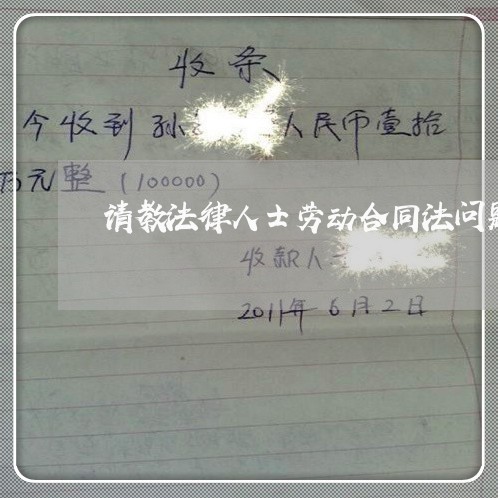 收条
今收到孙 人民币壹拾
万元整（100000）
请教法律人士劳动合同法问题
收款人
2011年6月2日